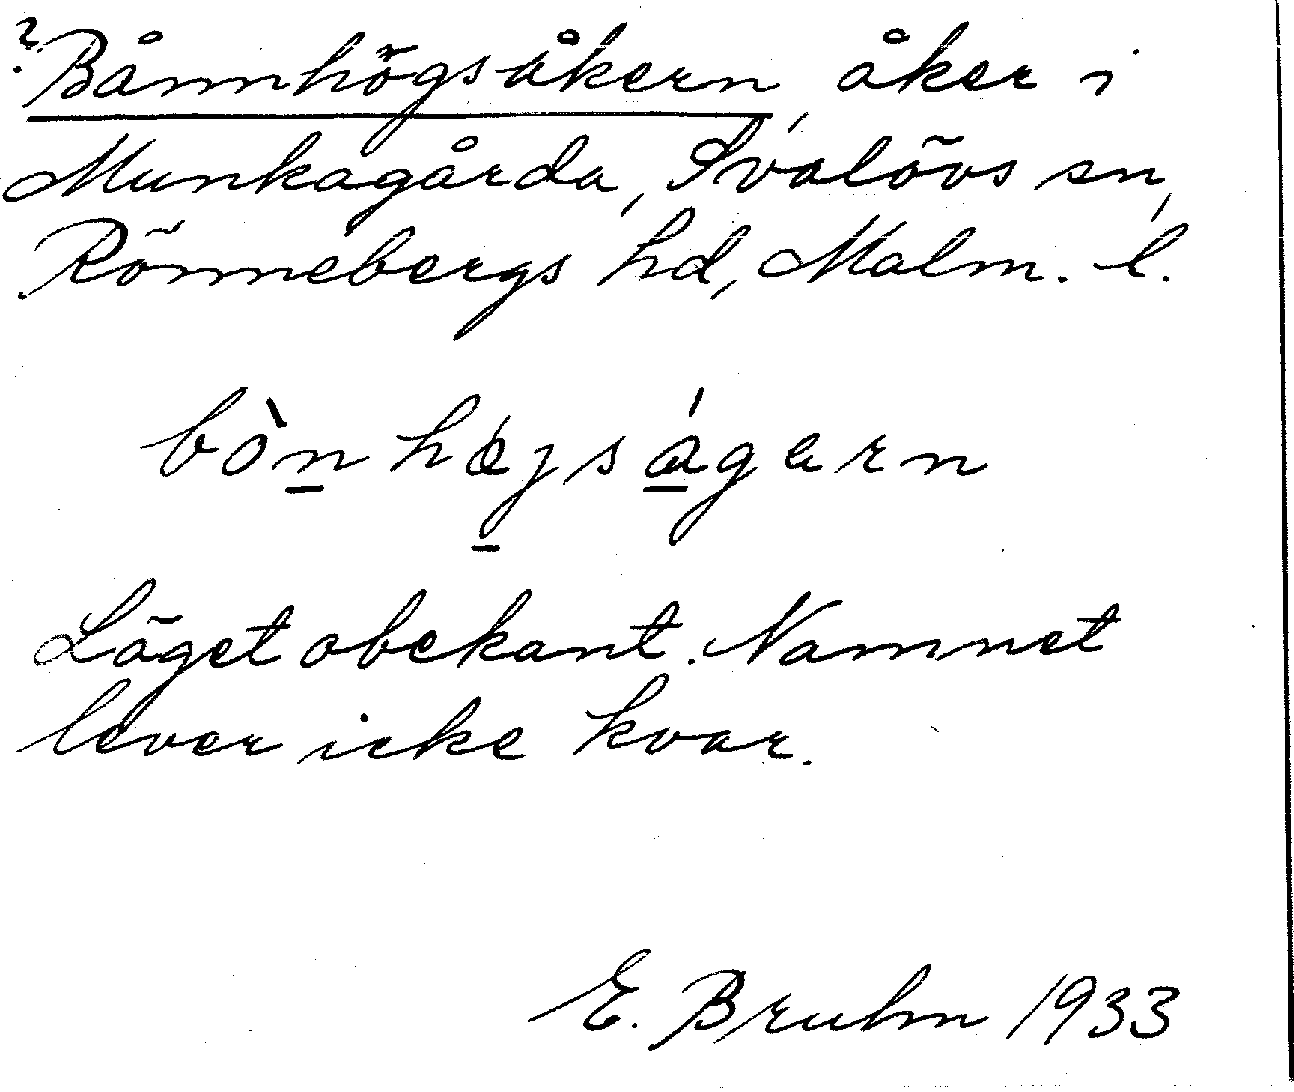 ? Bånnhögsåkern, åker i
Munkagårda, Svalövs sn,
Rönnebergs hd, Malm. l.
bònhøjságarn
Läget obekant. Namnet
lever icke kvar.
E. Bruhn 1933